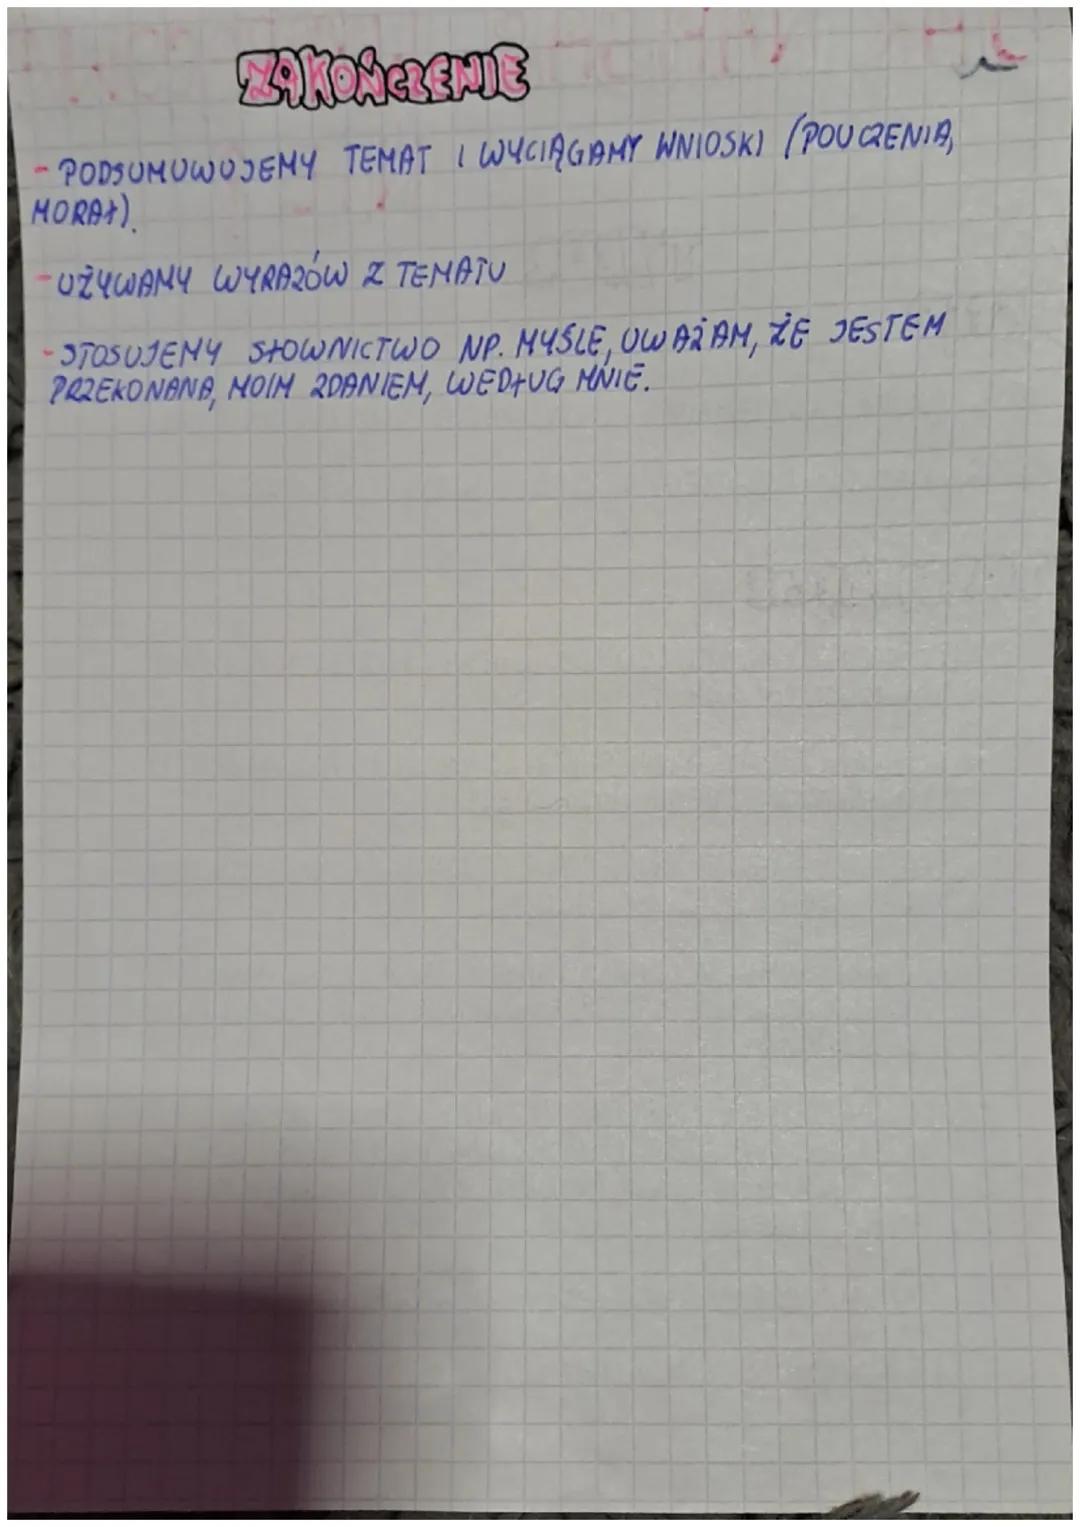 ZAKOŃCZENIE
- PODSUMUWUJEMY TEMAT I WYCIĄGAMY WNIOSKI (POUCZENIA,
MORAŁ).
- UŻYWAMY WYRAZÓW Z TEMATU
- STOSUJEMY SŁOWNICTWO NP. MYŚLE, UWAŻAM, ŻE JESTEM
PRZEKONANA, MOIM ZDANIEM, WEDŁUG MNIE.